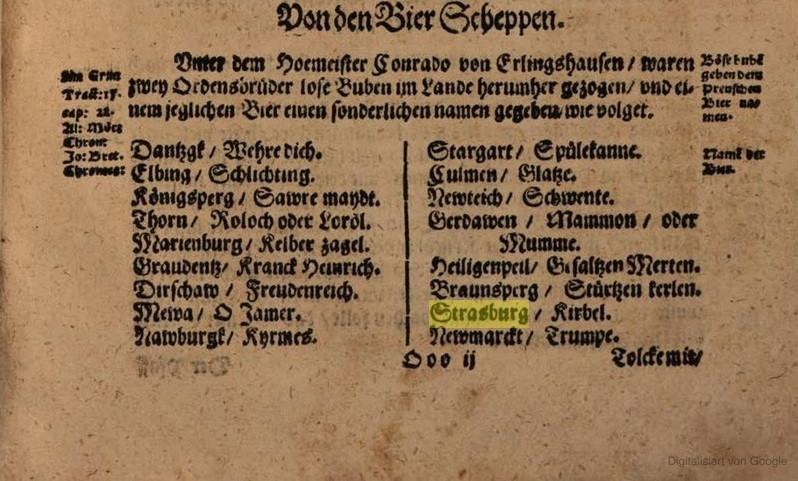 Von den Bier Scheppen.
Vnter dem Hoemeister Conrado von Erlingshausen / waren
zwey Ordensbrüder lose Buben im Lande herumher gezogen / vnd ei-
nem jeglichen Bier einen sonderlichen namen gegeben / wie volget.
Sim Grun
Tract: 17.
cap: 21.
Chron
Jo: Bret.
Böse bube
geben dem
Preuschen
Bier nao
men.
Name der
Bier.
Dantzgk / Wehre dich.
Elbing / Schlichting.
Königsperg / Sawre maydt.
Thorn / Roloch oder Loröl.
Marienburg / Kelber zagel.
Graudentz / Kranck Heinrich.
Dirschaw / Freudenreich.
Mewa / O Jamer.
Nawburgk / Kyrmes.
Stargart / Spülekanne.
Culmen / Glatze.
Newteich / Schwente.
Gerdawen / Mammon / oder
Mumme.
Heiligenpeil / Gesaltzen Merten.
Braunsperg / Stürtzen kerlen.
Strasburg / Kirbel.
Newmarckt / Trumpe.
Ooo ij
Tolckemit /
Digitalisiert von Google